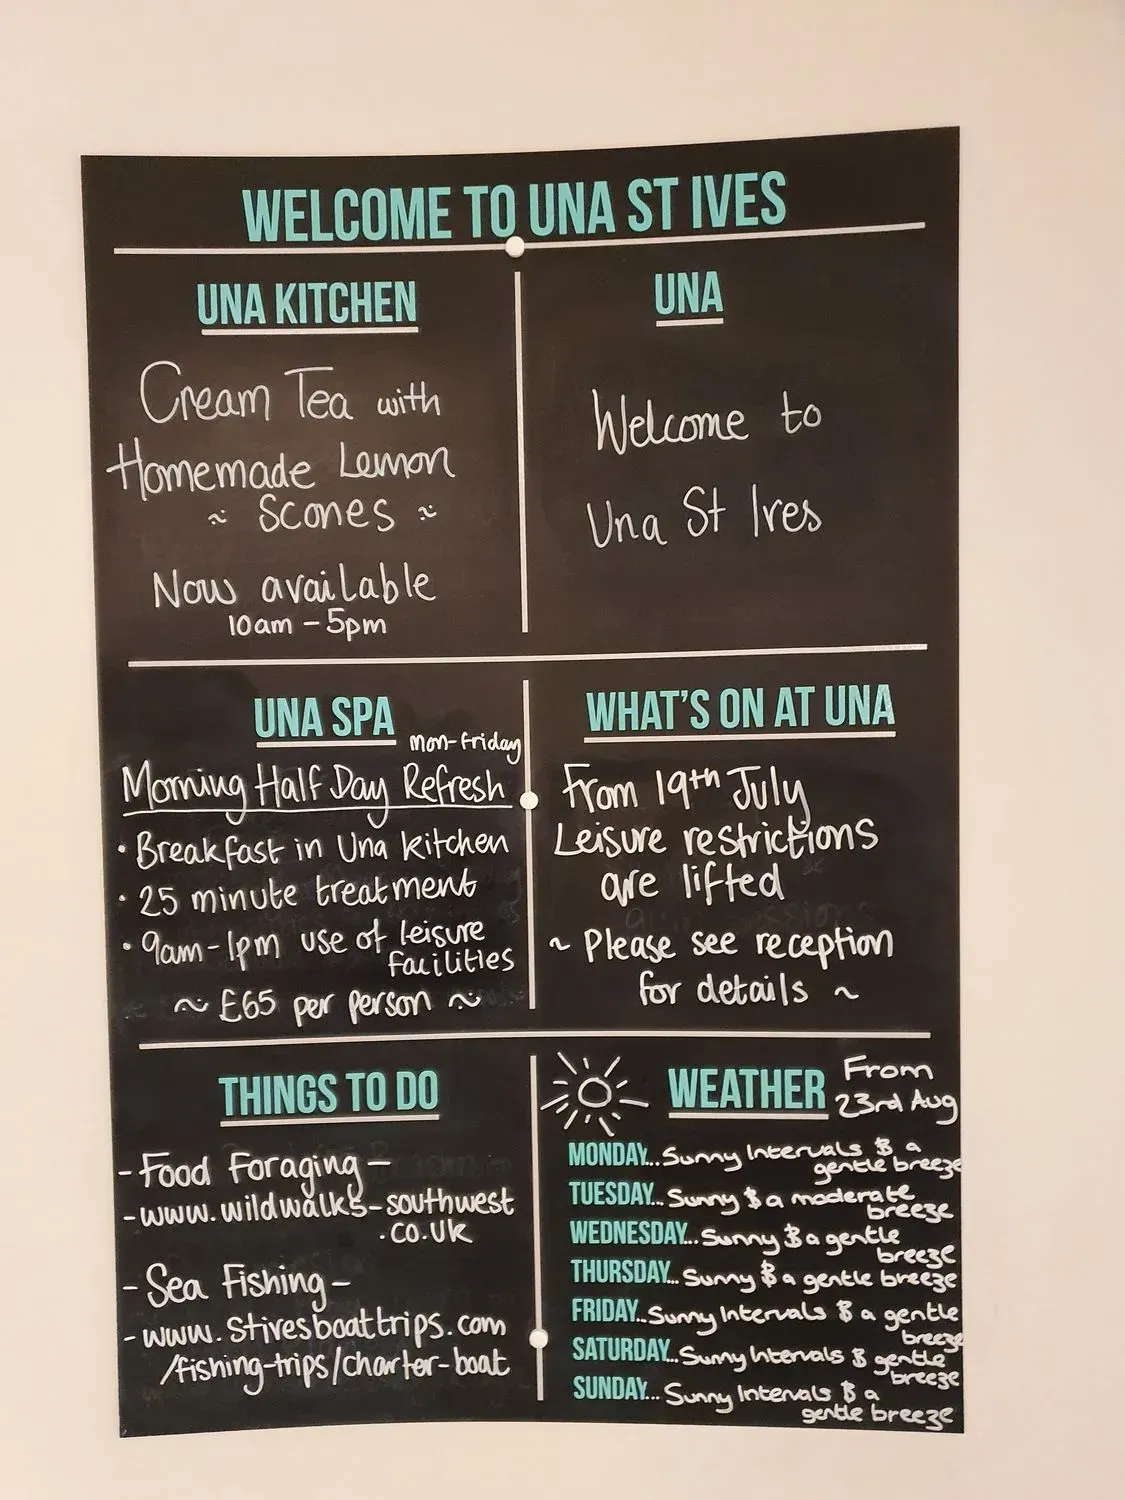 WELCOME TO UNA ST IVES
UNA KITCHEN
Cream Tea with
Homemade Lemon
~ Scones ~
Now available
10am - 5pm
UNA
Welcome to
Una St Ives
UNA SPA
Mon-Friday
Morning Half Day Refresh
• Breakfast in Una kitchen
• 25 minute treatment
• 9am-1pm use of leisure
facilities
~ £65 per person ~
WHAT'S ON AT UNA
From 19th July
Leisure restrictions
are lifted
~ Please see reception
for details ~
THINGS TO DO
- Food Foraging -
- www.wildwalks-southwest
.co.uk
- Sea Fishing -
- www.stivesboattrips.com
/fishing-trips/charter-boat
WEATHER From
23rd Aug
MONDAY... Sunny Intervals & a
gentle breeze
TUESDAY... Sunny & a moderate
breeze
WEDNESDAY... Sunny & a gentle
breeze
THURSDAY... Sunny & a gentle breeze
FRIDAY... Sunny Intervals & a gentle
breeze
SATURDAY... Sunny Intervals & gentle
breeze
SUNDAY... Sunny Intervals & a
gentle breeze